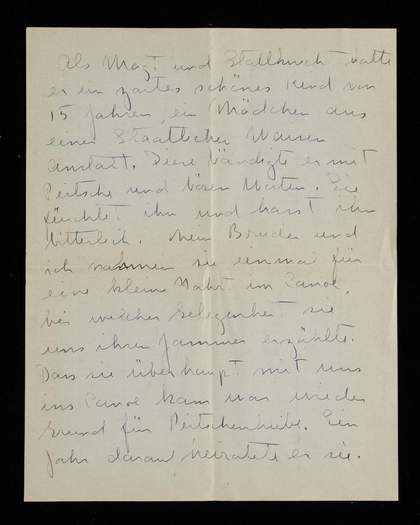 Als Magt und Stallknecht hatte
er ein zartes schönes Kind von
15 Jahren, ein Mädchen aus
einer Staatlichen Waisen
anstalt. Diese bändigte er mit
Peitsche und bösen Worten. Sie
fürchtet ihn und hasst ihn
bitterlich. Mein Bruder und
ich nahmen sie einmal für
eine kleine Fahrt im Canoe,
bei welcher Gelegenheit sie
uns ihren Jammer erzählte.
Dass sie überhaupt mit uns
ins Canoe kam war wieder
Grund für Peitschenhiebe. Ein
Jahr darauf heiratete er sie.